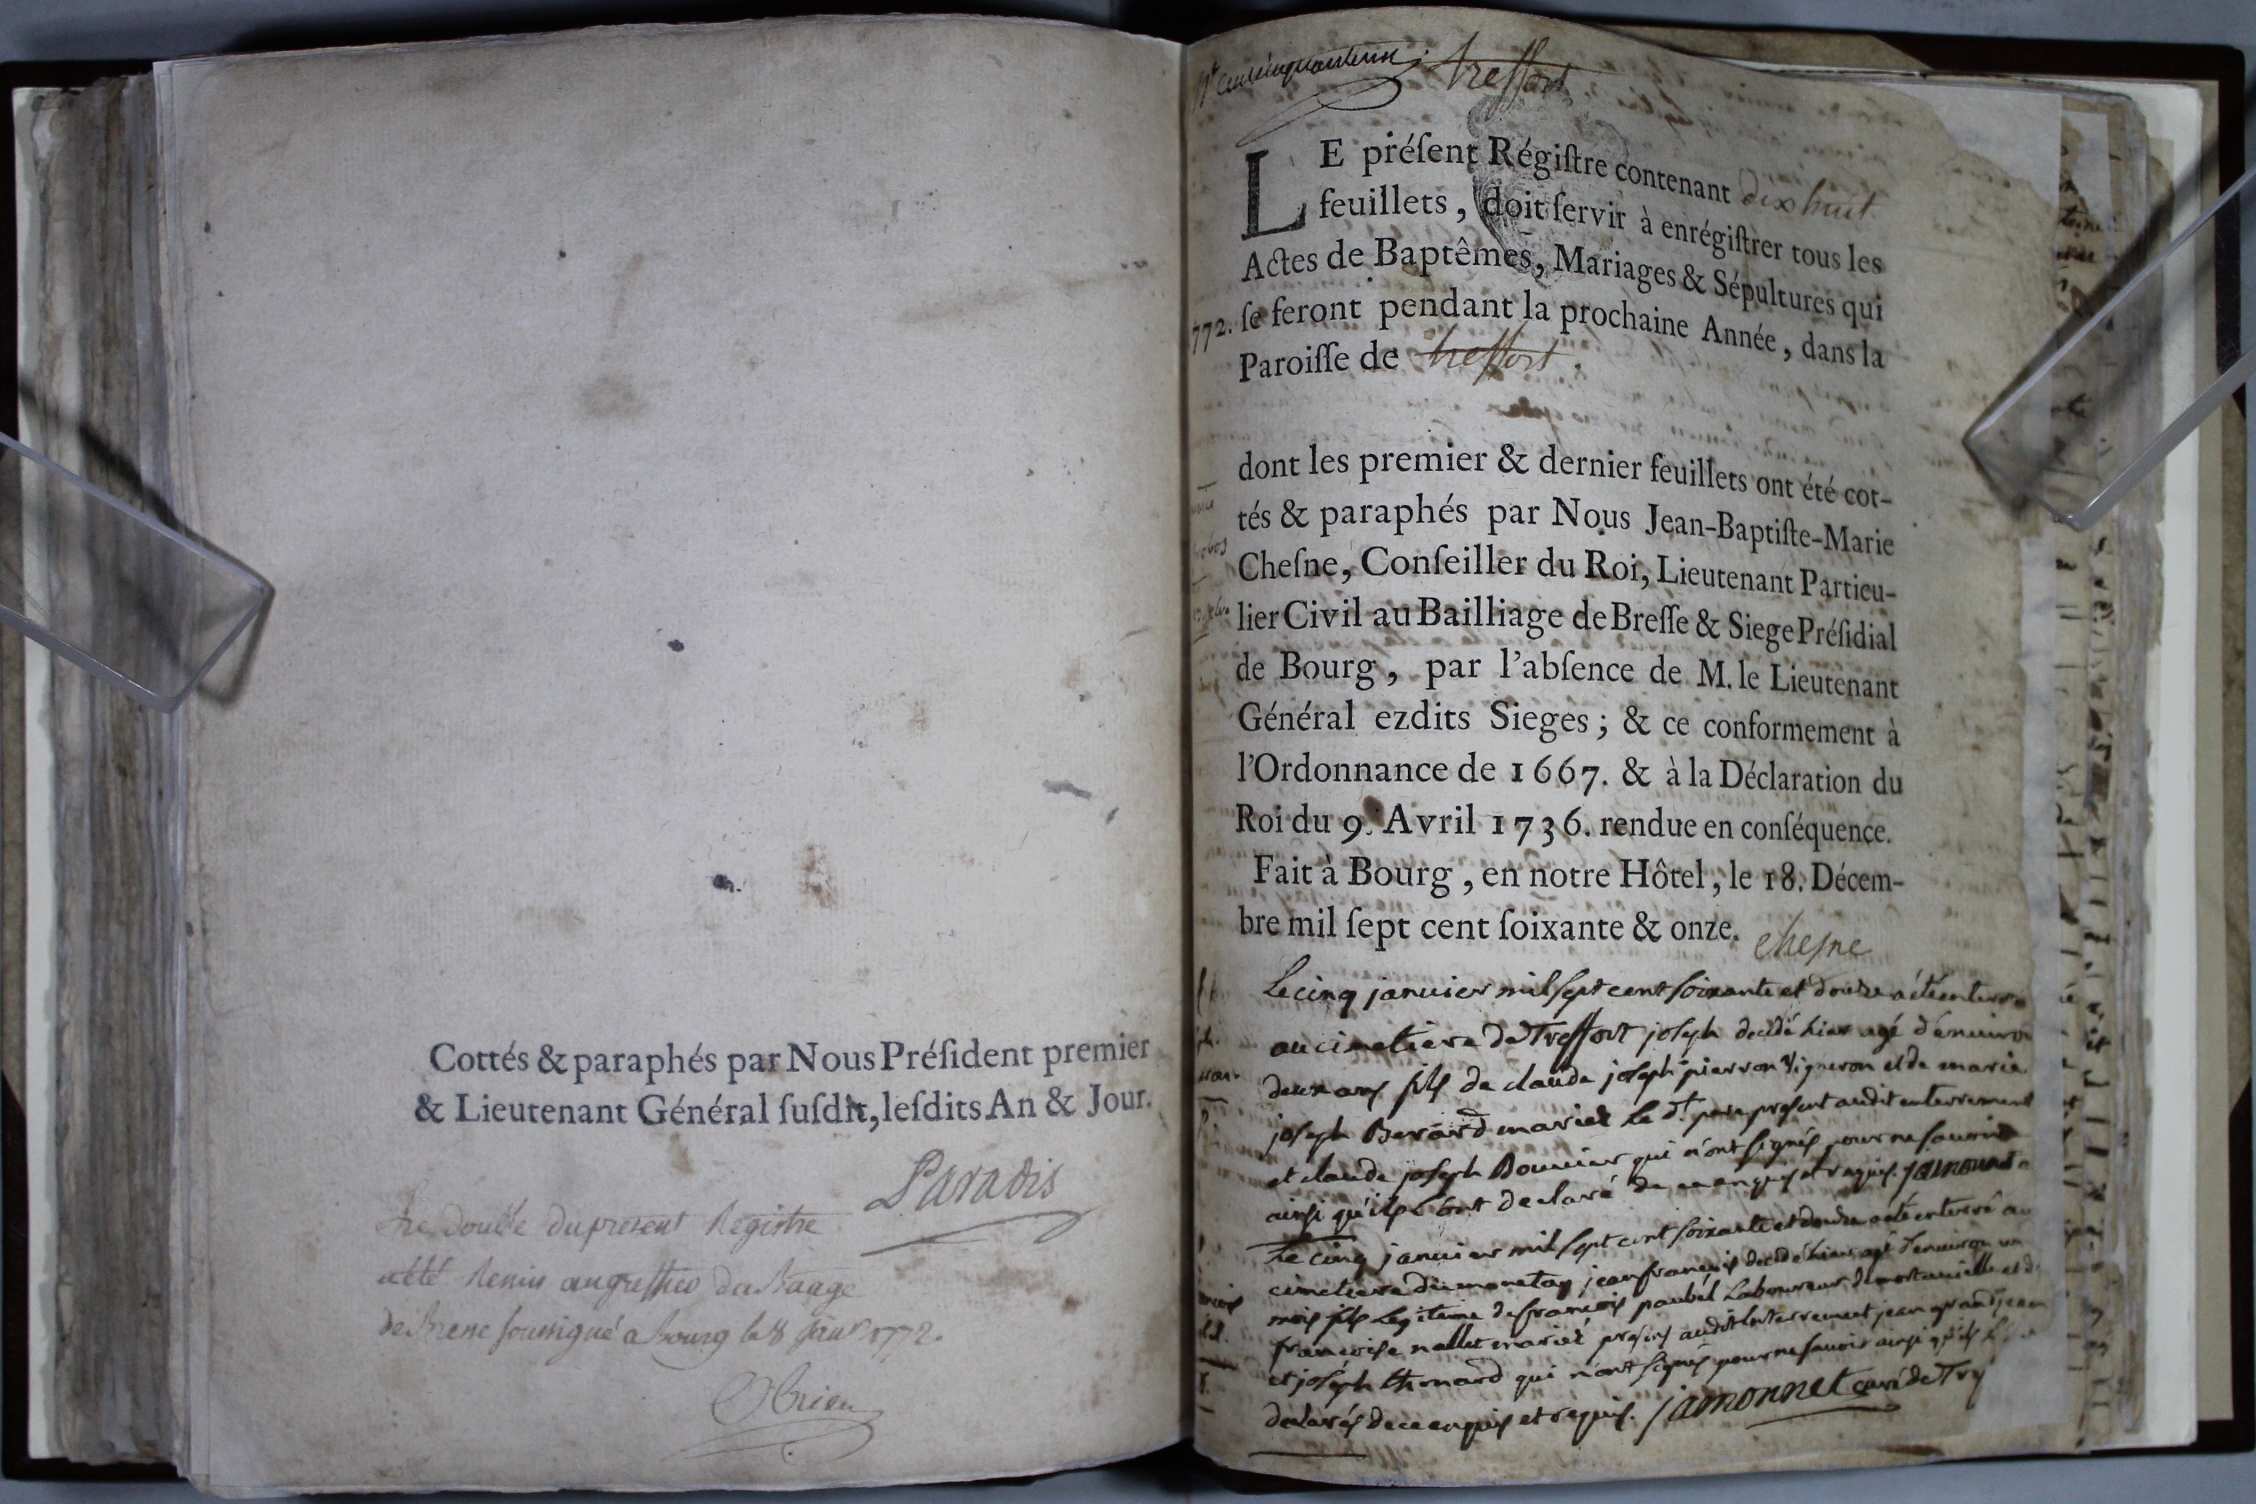 Cottés & paraphés par Nous Préſident premier
& Lieutenant Général ſuſdit, leſdits An & Jour.
Paradis
Le double du present Registre
a été Remis au greffier
soussigné a bourg le 8 janvr 1772.
Obrien
treffort
LE préſent Régiſtre contenant dix huit
feuillets, doit ſervir à enrégiſtrer tous les
Actes de Baptêmes, Mariages & Sépultures qui
772. ſe feront pendant la prochaine Année, dans la
Paroiſſe de treffort.
dont les premier & dernier feuillets ont été cot-
tés & paraphés par Nous Jean-Baptiſte-Marie
Cheſne, Conſeiller du Roi, Lieutenant Particu-
lier Civil au Bailliage de Breſſe & Siege Préſidial
de Bourg, par l'abſence de M. le Lieutenant
Général ezdits Sieges; & ce conformement à
l'Ordonnance de 1667. & à la Déclaration du
Roi du 9. Avril 1736. rendue en conſéquence.
Fait à Bourg, en notre Hôtel, le 18. Décem-
bre mil ſept cent ſoixante & onze.
chesne
Le cinq janvier mil sept cent soixante et douze a été enterré
au cimetiere de Treffort joseph decédé hier agé d'environ
deux ans fils de claude joseph pierron vigneron et de marie
joseph Berard mariés le dt. pere present audit enterrement
et claude joseph Bouvier qui n'ont signés pour ne savoir
ainsi qu'ils l'ont declaré de ce enquis et requis. jamonnet
Le cinq janvier mil sept cent soixante et douze a été enterré au
cimetiere du monetay jean françois decédé hier agé d'environ un
mois fils legitime de françois paubel Laboureur de montanielle et de
francoise nallet mariés presens audit enterrement jean grandjean
et joseph thomard qui n'ont signés pour ne savoir ainsi qu'ils l'ont
declarés de ce enquis et requis. jamonnet curé de Try